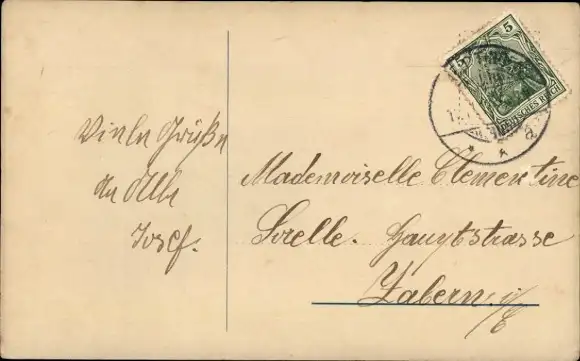 Viele Grüße
an Alle
Josef.
Mademoiselle Clementine
Sorelle. Hauptstrasse
Zabern. i/E
5
DEUTSCHES REICH